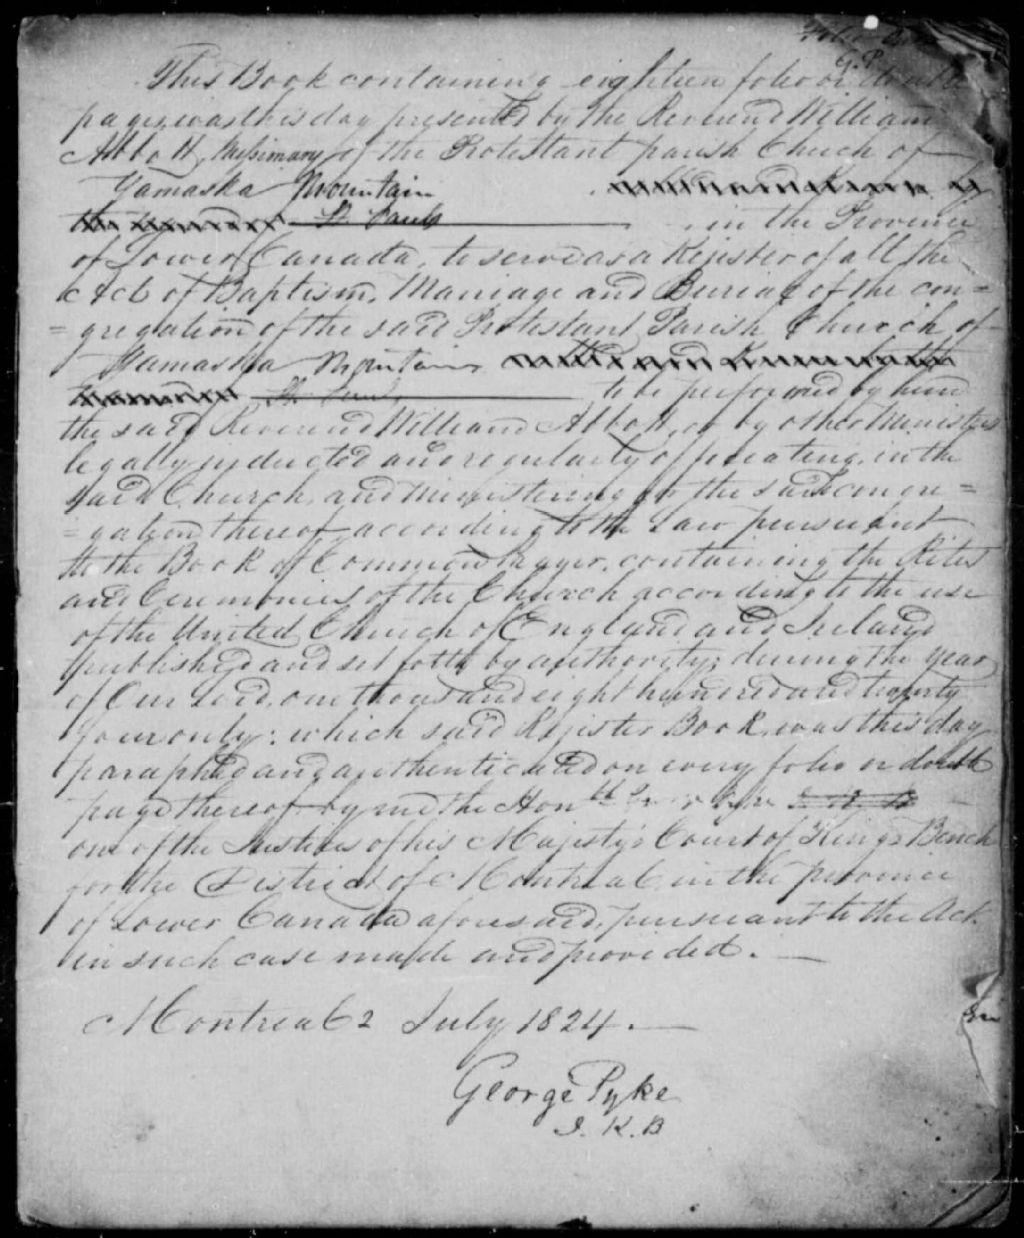 G.P.
This Book containing eighteen folio or double
pages was this day presented by the Reverend William
Abbott, Missionary of the Protestant parish Church of
Yamaska Mountain
St. Pauls in the Province
of Lower Canada, to serve as a Register of all the
Acts of Baptism, Marriage and Burial of the con=
=gregation of the said Protestant Parish Church of
Yamaska Mountain
St. Pauls to be performed by him
the said Reverend William Abbott, or by other Ministers
legally inducted and regularly officiating, in the
said Church, and ministering to the said congre=
=gation thereof according to the Law pursuant
to the Book of Common Prayer, containing the Rites
and Ceremonies of the Church according to the use
of the United Church of England and Ireland
published and set forth by authority; during the year
of Our Lord, one thousand eight hundred and twenty
four only: which said Register Book, was this day
paraphed and authenticated on every folio or double
page thereof by me the Honble George Pyke
one of the Justices of his Majesty's Court of King's Bench
for the District of Montreal, in the province
of Lower Canada aforesaid, pursuant to the Act
in such case made and provided.
Montreal 2 July 1824.
George Pyke
J. K. B